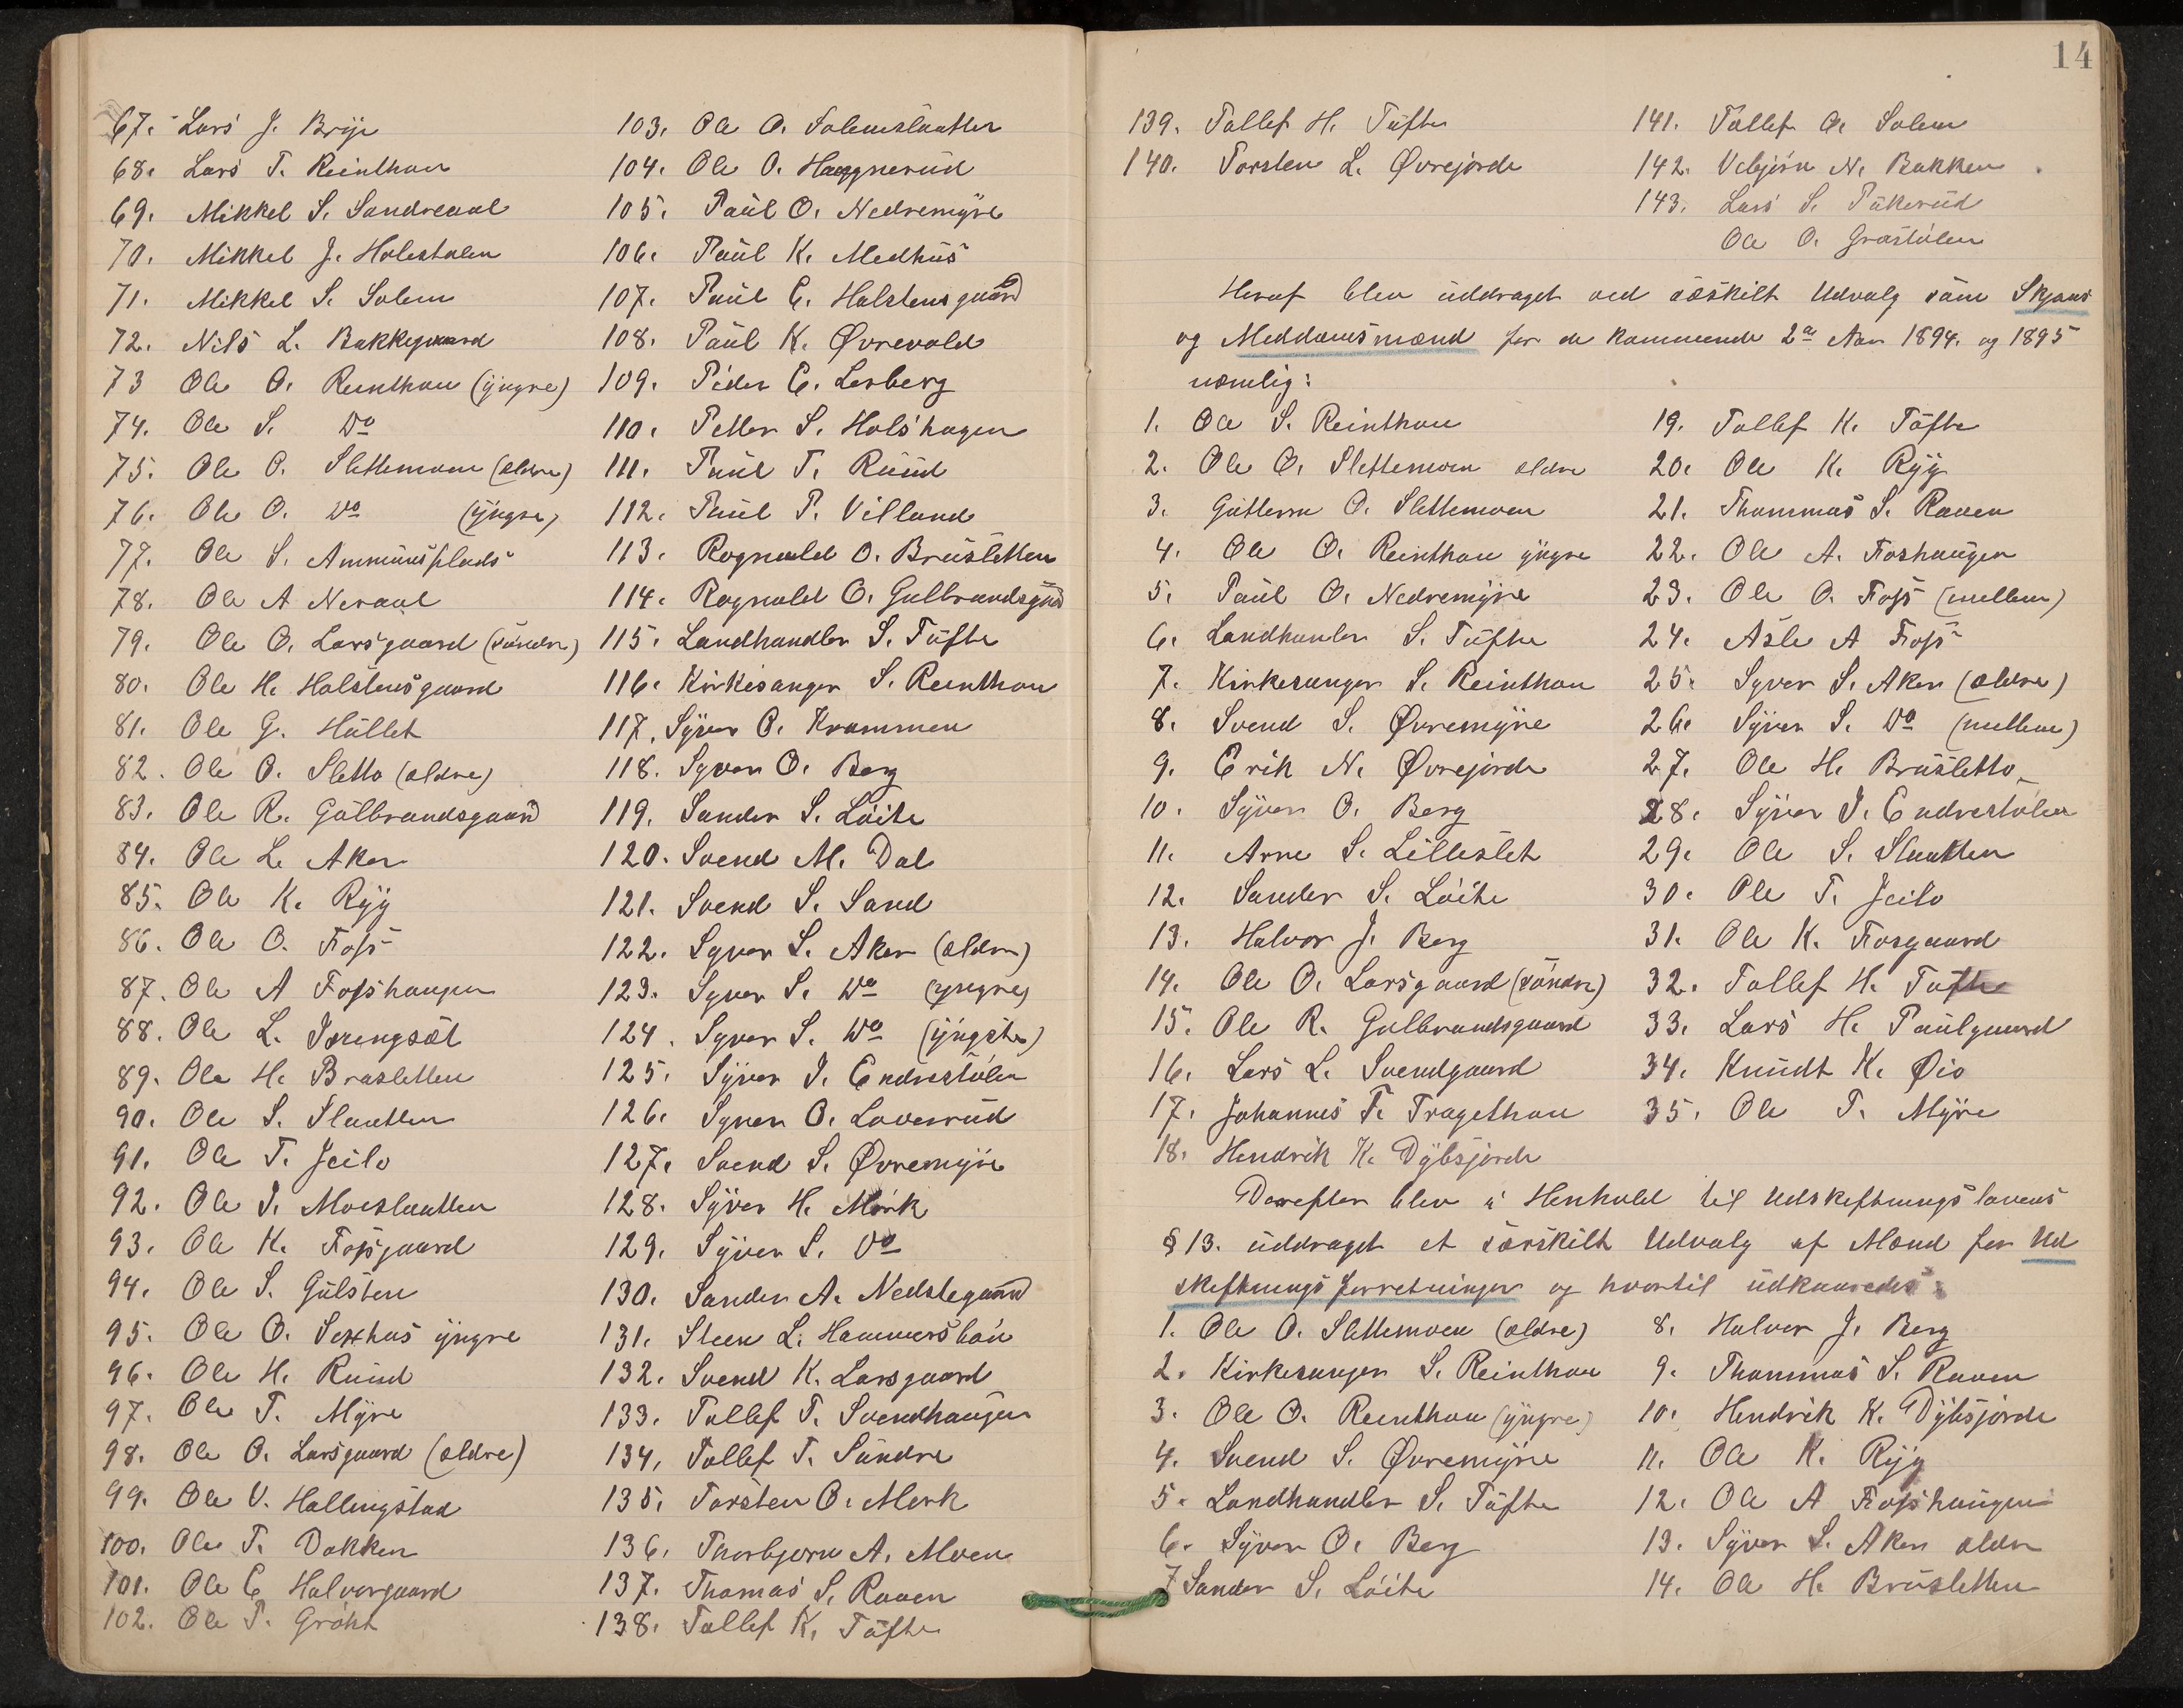 67. Lars J. Brye
68. Lars T. Reinthon
69. Mikkel S. Sandreaal
70. Mikkel J. Holestølen
71. Mikkel S. Solem
72. Nils L. Bakkegaard
73 Ole O. Reinthon (yngre)
74. Ole S. Do
75. Ole O. Slettemoen (ældre)
76. Ole O. Do (yngre)
77. Ole S. Ammunsplads
78. Ole A Neraal
79. Ole O. Larsgaard (søndre)
80. Ole H. Halstensgaard
81. Ole G. Hallet
82. Ole O. Sletto (ældre)
83. Ole R. Gulbrandsgaard
84. Ole L. Aker
85. Ole K. Ryg
86. Ole O. Foss
87. Ole A Fosshaugen
88. Ole L.
89. Ole H. Brusletten
90. Ole S. Slaatten
91. Ole T. Jeilo
92. Ole J. Moeslaatten
93. Ole K. Fossgaard
94. Ole S. Gulsten
95. Ole O. Sexhus yngre
96. Ole H. Ruud
97. Ole T. Myre
98. Ole O. Larsgaard (ældre)
99. Ole V. Hallingstad
100. Ole T. Dokken
101. Ole E Halvorgaard
102. Ole P. Grøht
103. Ole O. Solemslaatten
104. Ole O. Haggnerud
105. Paul O. Nedremyre
106. Paul K. Medhus
107. Paul E. Halstensgaard
108. Paul K. Øvrevold
109. Peder E. Lerberg
110. Petter S. Holshagen
111. Paul T. Ruud
112. Paul P. Villand
113. Rognald O. Brusletten
114. Rognald O. Gulbrandsgrd
115. Landhandler S. Tufte
116. Kirkesanger S. Reinthon
117. Syver O. Krammen
118. Syver O. Berg
119. Sander S. Løite
120. Svend M. Dal
121. Svend S. Sand
122. Syver S. Aker (ældre)
123. Syver S. Do (yngre)
124. Syver S. Do (yngste)
125. Syver J. Endrestølen
126. Syver O. Loverud
127. Svend S. Øvremyre
128. Syver H. Mørk
129. Syver S. Do
130. Sander A. Nedstegaard
131. Steen L. Hammersbøn
132. Svend K. Larsgaard
133. Tollef T. Svendhaugen
134. Tollef T. Sundre
135. Torsten O. Mork
136. Thorbjørn A. Moen
137. Thomas S. Raaen
138. Tollef K. Tufte
14
139. Tollef H. Tufte
140. Torsten L. Øvrejorde
141. Tollef O. Solem
142. Vebjørn N. Bakken
143. Lars S. Pukerud
Ole O. Grøstølen
Heraf blev uddraget ved særskilt Udvalg som Skjøns
og Meddomsmænd for de kommende 2de Aar 1894. og 1895
nemlig:
1. Ole S. Reinthon
2. Ole O. Slettemoen ældre
3. Guttorm O. Slettemoen
4. Ole O. Reinthon yngre
5. Paul O. Nedremyre
6. Landhanler S. Tufte
7. Kirkesanger S. Reinthon
8. Svend S. Øvremyre
9. Erik N. Øvrejorde
10. Syver O. Berg
11. Arne S. Lilleslet
12. Sander S. Løite
13. Halvor J. Berg
14. Ole O. Larsgaard (søndre)
15. Ole R. Gulbrandsgaard
16. Lars L. Svendgaard
17. Johannes T. Tragethon
18. Hendrik K. Dybsjorde
19. Tollef K. Tufte
20. Ole K. Ryg
21. Thommas S. Raaen
22. Ole A. Foshaugen
23. Ole O. Foss (mellem)
24. Asle A Foss
25. Syver S. Aker (ældre)
26. Syver S. Do (mellem)
27. Ole H. Brusletto
28. Syver J. Endrestølen
29. Ole S. Slaatten
30. Ole T. Jeilo
31. Ole K. Fosgaard
32. Tollef H. Tufte
33. Lars H. Paulgaard
34. Knudt K. Øio
35. Ole T. Myre
Derefter blev i Henhold til Udskiftningslovens
§ 13. uddraget et særskilt Udvalg af Mænd for Ud
skiftningsforretninger og hvortil udkaaredes:
1. Ole O. Slettemoen (ældre)
2. Kirkesanger S. Reinthon
3. Ole O. Reinthon (yngre)
4. Svend S. Øvremyre
5. Landhandler S. Tufte
6. Syver O. Berg
7 Sander S. Løite
8. Halvor J. Berg
9. Thommas S. Raaen
10. Hendrik K. Dybsjorde
11. Ole K. Ryg
12. Ole A Fosshaugen
13. Syver S. Aker ældre
14. Ole H. Brusletten